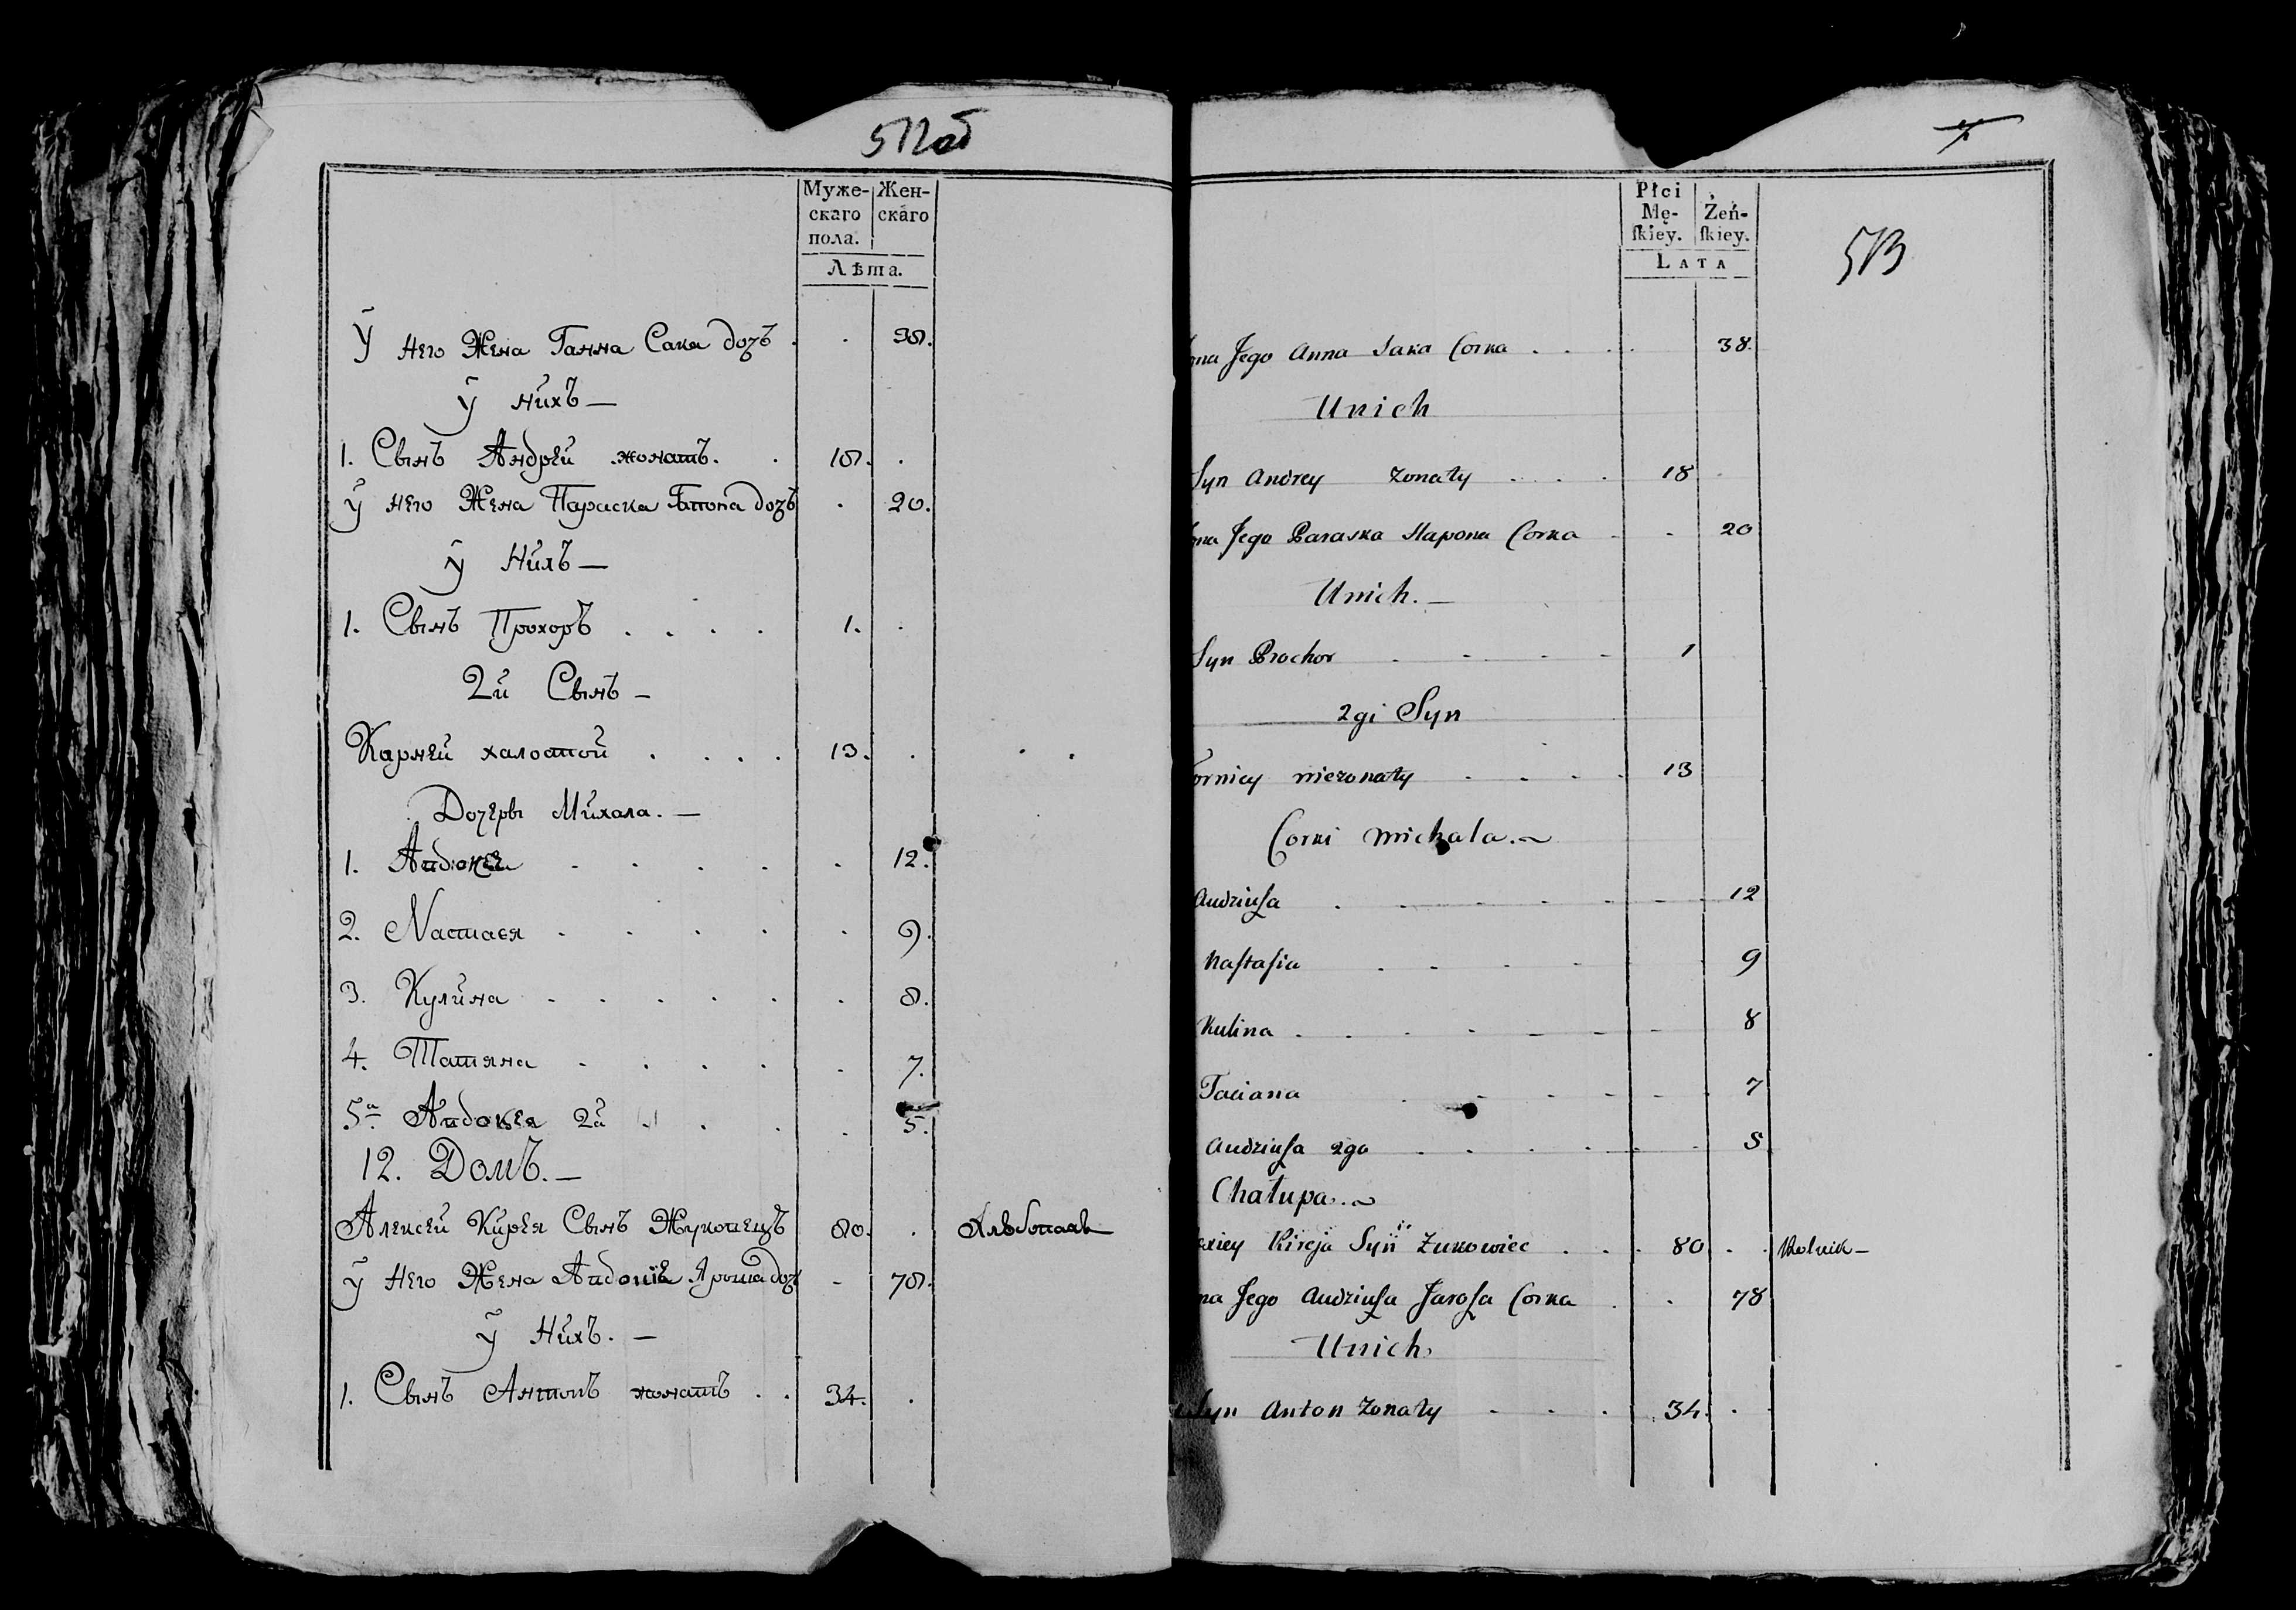 512об
Муже-
скаго
пола.
Жен-
скаго
Лѣта.
У него Жена Ганна Сака дочъ . . 38.
у нихъ —
1. Сынъ Андрей жонатъ. . 18. .
у него Жена Параска Гапона дочъ . 20.
у Нихъ —
1. Сынъ Прохоръ . . . . 1. .
2й Сынъ —
Карней халостой . . . . 13. .
Дочеры Михала. —
1. Авдокея . . . . . 12.
2. Настасея . . . . . 9.
3. Кулина . . . . . . 8.
4. Татяна . . . . . 7.
5а Авдокея 2а . . . 5.
12. Домъ. —
Алексей Кирея Сынъ Жуковецъ 80. .
у Него Жена Авдокѣя Яроша доч - 78.
у Нихъ. —
1. Сынъ Антонъ жонатъ . . 34. .
Płci
Mę-
ſkiey.
Żeń-
ſkiey.
LATA
513
na Jego Anna Saka Corka . . . . 38.
Unich
Syn Andrey Zonaty . . . . 18 .
na Jego Paraska Hapona Corka - . 20
Unich. —
Syn Prochor . - . . - 1
2gi Syn
ornicy niezonaty . . . . 13
Corki Michala. ~
Audziuſa . . . . . . 12
Naſtaſia . . . . 9
Kulina . . . . - - - 8
Taciana . . . . - - . 7
Audziuſa 2go . . . . . . 5
Chałupa. . ~
xiey Kireja Syn Zukowiec . . . 80 . . Rolnik —
na Jego Audziuſa Jaroſa Corka . . 78
Unich.
Syn Anton Zonaty . . . 34. . .